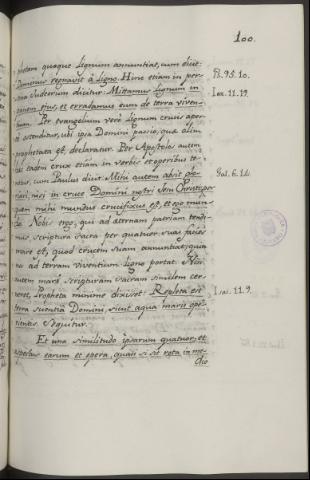 100.
phetam quoque Lignum annuntiat, cum dicit:
Dominus regnavit à Ligno. Hinc etiam in per-
sona Judeorum dicitur: Mittamus Lignum in
panem ejus, et erradamus eum de terra viven-
tium. Per evangelium verò Lignum crucis aper-
tè ostenditur, ubi ipsa Domini passio, quæ olim
prophetata est, declaratur. Per Apostolos autem
hæc eadem crux etiam in verbis et operibus te-
netur, cum Paulus dicit: Mihi autem absit glo-
riari, nisi in cruce Domini nostri Jesu Christi; per
quem mihi mundus crucifixus est, et ego mun-
do. Nobis ergo, qui ad æternam patriam tendi-
mus scriptura sacra per quatuor suas facies
mare est, quod crucem suam annuntiat; quia
nos ad terram viventium Ligno portat. Nisi
autem mari scripturam sacram similem cer-
neret, Propheta minimè dixisset: Repleta est
terra scientiâ Domini, sicut aqua maris ope-
rientis. Sequitur.
Et una similitudo ipsarum quatuor; et
aspectus earum et opera, quasi si sit rota in me-
dio
Ps. 95. 10.
Jer. 11. 19.
Gal. 6. 14.
Isai. 11. 9.